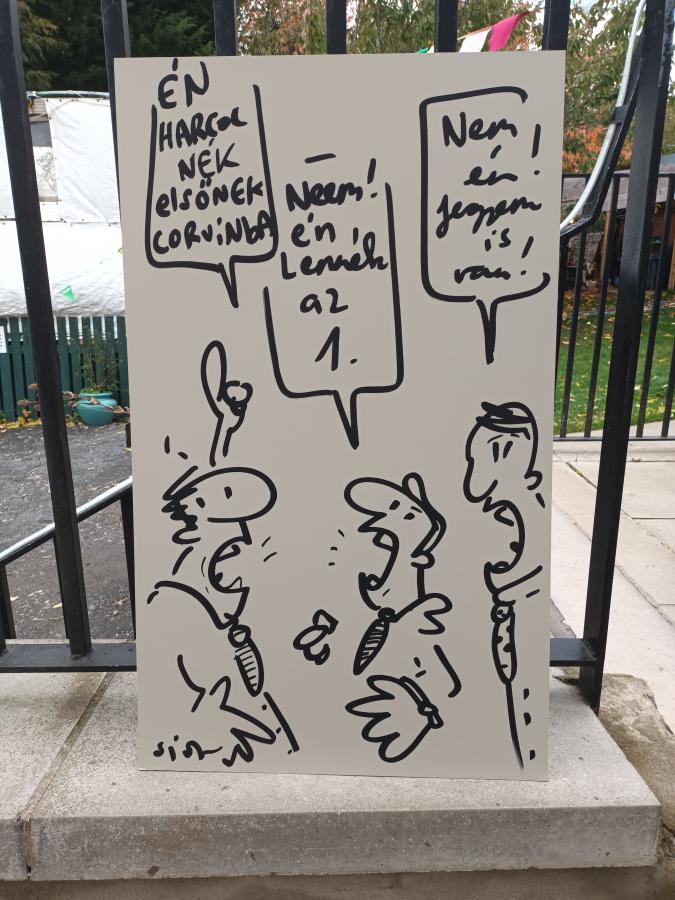 ÉN
HARCOL
NÉK
elsőNEK
CORVINBA
Neem!
én
Lennék
az
1.
Nem!
én
jegyem
is
van!